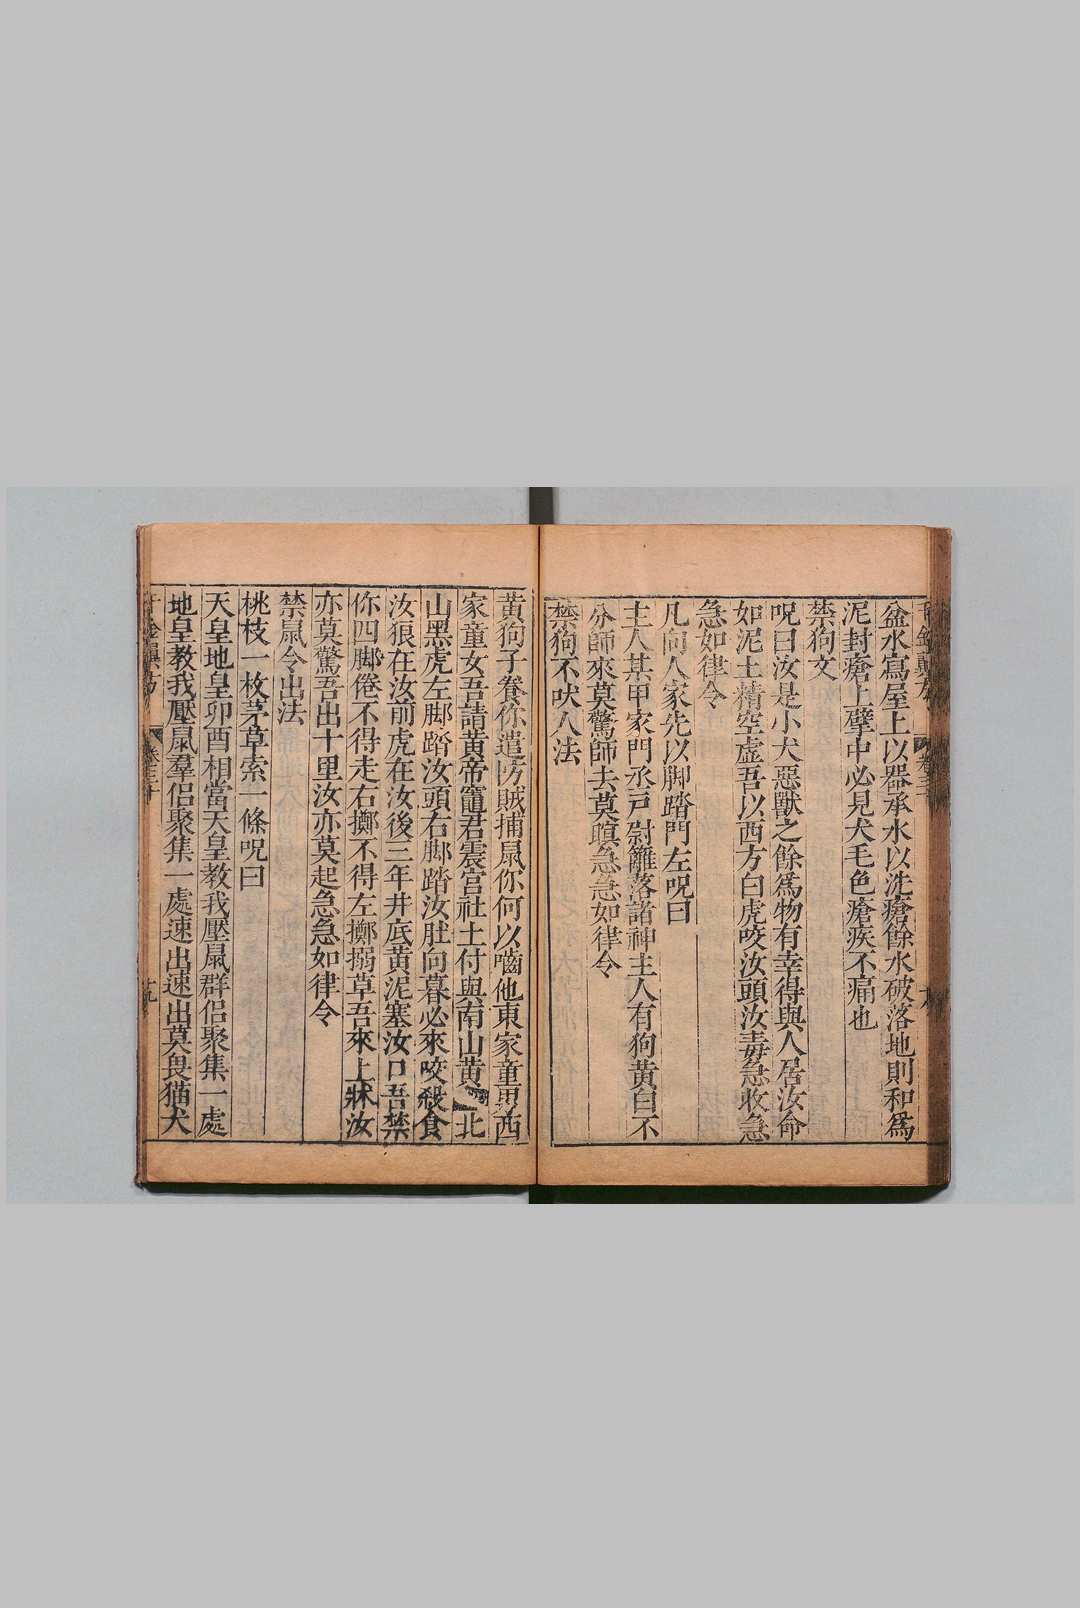 盆水寫屋上以器承水以洗瘡餘水破落地則和爲
泥封瘡上擘中必見犬毛色瘡疾不痛也
禁狗文
呪曰汝是小犬惡獸之餘爲物有幸得與人居汝命
如泥土精空虛吾以西方白虎咬汝頭汝毒急收急
急如律令
凡向人家先以脚踏門左呪曰
主人某甲家門丞戸尉籬落諸神主人有狗黄白不
分師來莫驚師去莫瞋急急如律令
禁狗不吠人法
黄狗子養你遣防賊捕鼠你何以嚙他東家童男西
家童女吾請黄帝竈君震宫社土付與南山黄 北
山黑虎左脚踏汝頭右脚踏汝肚向暮必來咬殺食
汝狼在汝前虎在汝後三年井底黄泥塞汝口吾禁
你四脚倦不得走右擲不得左擲搦草吾來上牀汝
亦莫驚吾出十里汝亦莫起急急如律令
禁鼠令出法
桃枝一枚茅草索一條呪曰
天皇地皇卯酉相當天皇教我壓鼠群侣聚集一處
地皇教我壓鼠羣侣聚集一處速出速出莫畏猫犬
卷三十
十九